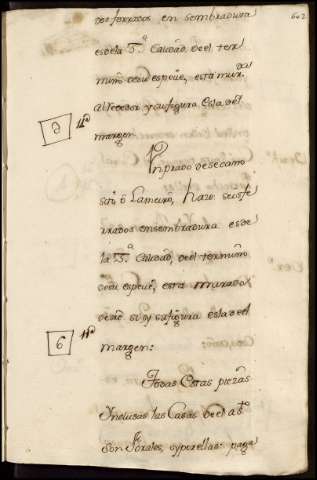 602
dos ferrados en sembradura
es de la 3ª Calidad, de el ter
mino de su especie, está mura
Alrededor y su figura es la del
margen.
Un prado de secano
sito ô Lameiro, hace dos fe
rrados en sembradura es de
la 3ª Calidad, de el termino
de su especie, está murado
de por si, y su figura es la del
margen:
Todas Estas piezas
Inclusas las Casas de el as.to
son forales, y por ellas paga